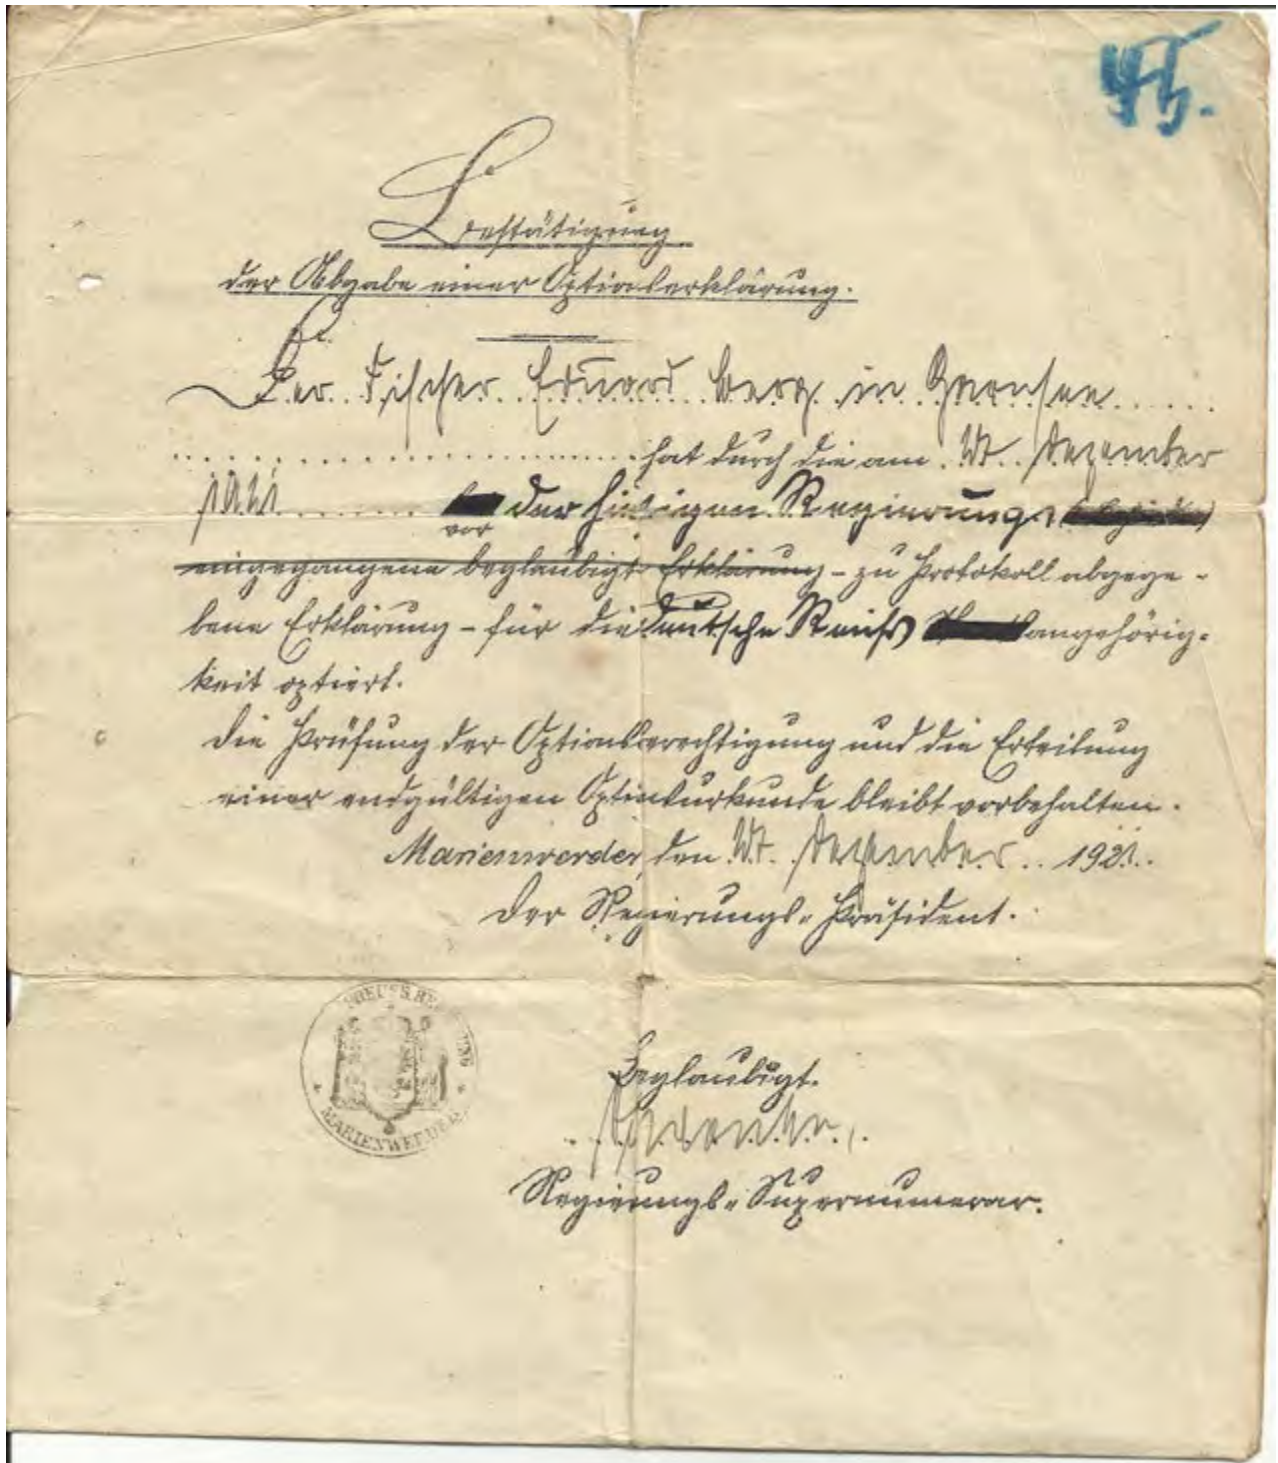 Bestätigung
der Abgabe einer Optionserklärung.
Der Fischer Eduard Berg in Garnsee
hat durch die am Dezember
1921 der hiesigen Regierung
vor
eingegangene beglaubigte Erklärung – zu Protokoll abgege-
bene Erklärung – für die deutsche Reichs angehörig-
keit optiert.
Die Prüfung der Optionsberechtigung und die Erteilung
einer endgültigen Optionsurkunde bleibt vorbehalten.
Marienwerder, den Dezember 1921.
Der Regierungs-Präsident.
PREUSS. REGIERUNG
* MARIENWERDER *
Beglaubigt.
Regierungs-Supernumerar.